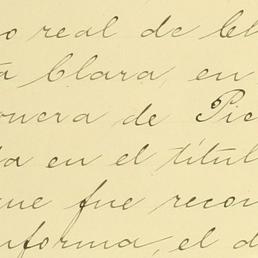 o real de Ch
a Clara, en
onera de Pie
ta en el títul
que fue recon
nforma, el d